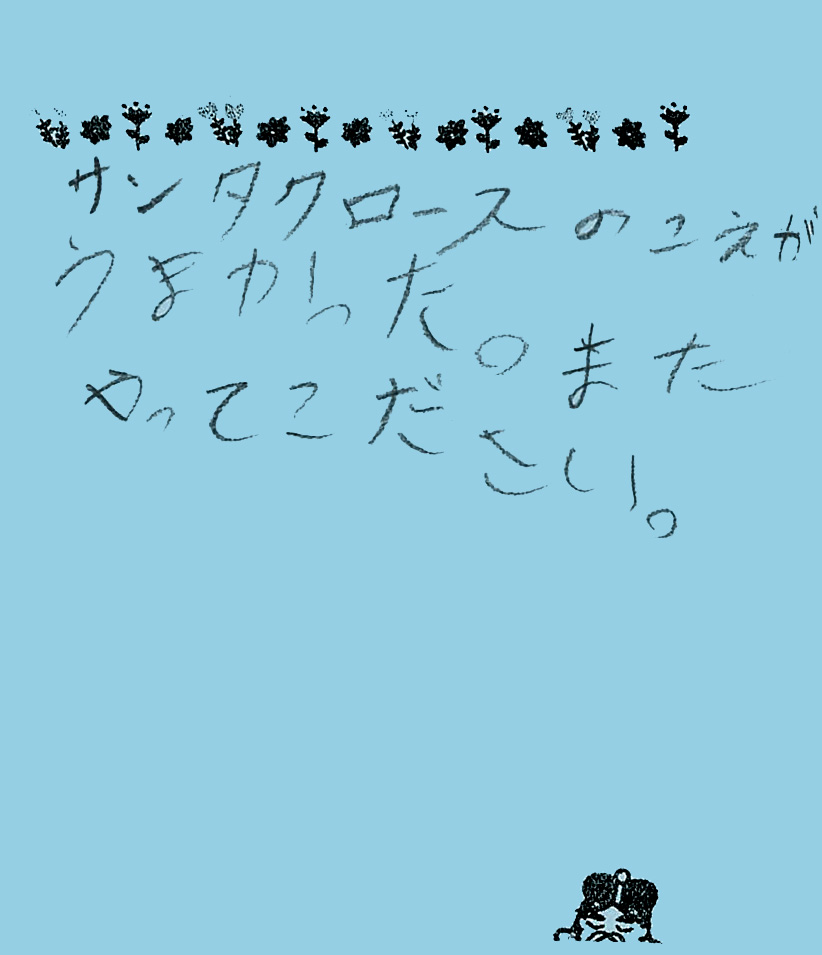 サンタクロースのこえが
うまかった。また
やってこださい。